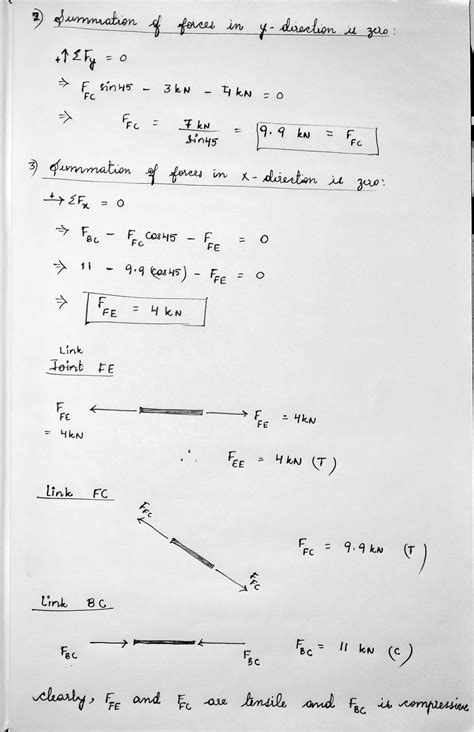 2) Summation of forces in y-direction is zero:
+↑ ΣFy = 0
⇒ F_FC sin45 - 3 kN - 4 kN = 0
⇒ F_FC = 7 kN / sin45 = 9.9 kN = F_FC
3) Summation of forces in x-direction is zero:
+→ ΣFx = 0
⇒ F_BC - F_FC cos45 - F_FE = 0
⇒ 11 - 9.9 (cos45) - F_FE = 0
⇒ F_FE = 4 kN
Link
Joint FE
F_FE F_FE = 4kN
= 4kN
∴ F_EE = 4 kN (T)
Link FC
F_FC
F_FC = 9.9 kN (T)
F_FC
Link BC
F_BC F_BC F_BC = 11 kN (C)
clearly, F_FE and F_FC are tensile and F_BC is compressive